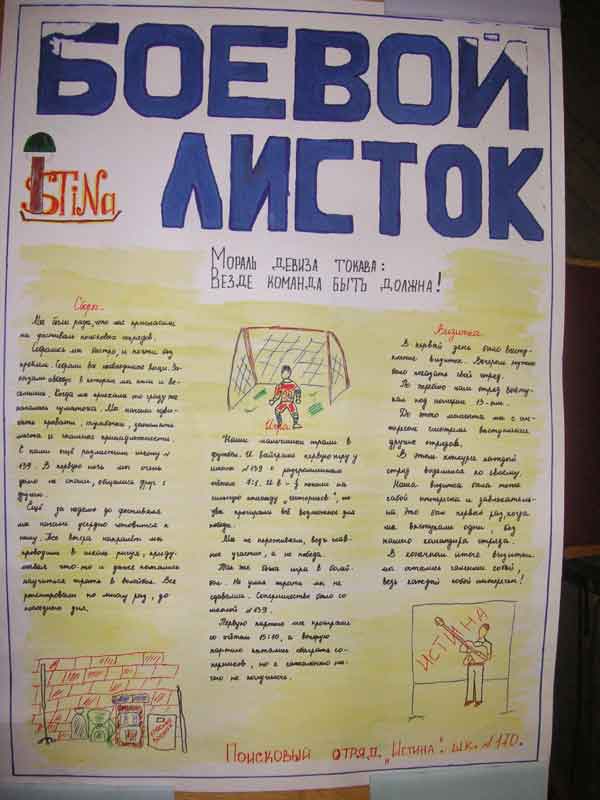 БОЕВОЙ
ЛИСТОК
iSTiNa
МОРАЛЬ ДЕВИЗА ТОКАВА:
ВЕЗДЕ КОМАНДА БЫТЬ ДОЛЖНА!
Сборы.
Мы были рады, что нас пригласили
на фестиваль поисковых отрядов.
Собрались мы быстро, и почти без
проблем. Собрали все необходимые вещи. За-
казали автобус в котором мы пели и ве-
селились. Когда мы приехали то сразу же
началась суматоха. Мы начали
кровати, тумбочки, занимать
места и
С нами ещё разместили школу N
139. В первую ночь мы очень
долго не спали, общались друг с
другом.
Ещё за неделю до фестиваля
мы начали усердно готовиться к
нему. Все вечера напролёт мы
проводили в школе рисуя, приду-
мывая что-то и даже пытались
научиться играть в волейбол. Все
репетировали по многу раз, до
последнего дня.
Игра
Наши мальчишки играли в
футбол. И выйграли первую игру у
школы №139 с разгромным
счётом 7:1. И в попали на
сильную команду "историков", но
увы проиграли всё возможное для
победы.
Мы не переживаем, ведь глав-
ное участие, а не победа.
Так же была игра в волей-
бол. Не умея играть мы не
сдавались. Соперничество было со
школой №139.
Первую партию мы проиграли
со счётом 15:10, и вторую
партию пытались обыграть со-
перников, но к сожалению ни-
чего не получилось.
Визитка
В первый день было высту-
пление визиток. Вечером нужно
было показать свой отряд.
По жребию наш отряд высту-
пал под номером 13-тым.
До этого момента мы с ин-
тересом смотрели выступления
других отрядов.
В этом конкурсе каждый
отряд выделился по своему.
Наша визитка была тоже
собой интересна и завлекатель-
на. Это был первый раз, когда
мы выступали одни, без
нашего командира отряда.
В конечном итоге визитки
мы остались самими собой,
ведь каждый собой интересен!
ИСТИНА
ПОИСКОВЫЙ ОТРЯД „ИСТИНА": ШК. №170.